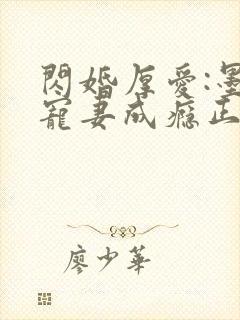 閃婚厚愛:墨
寵妻成癮正
廖少華